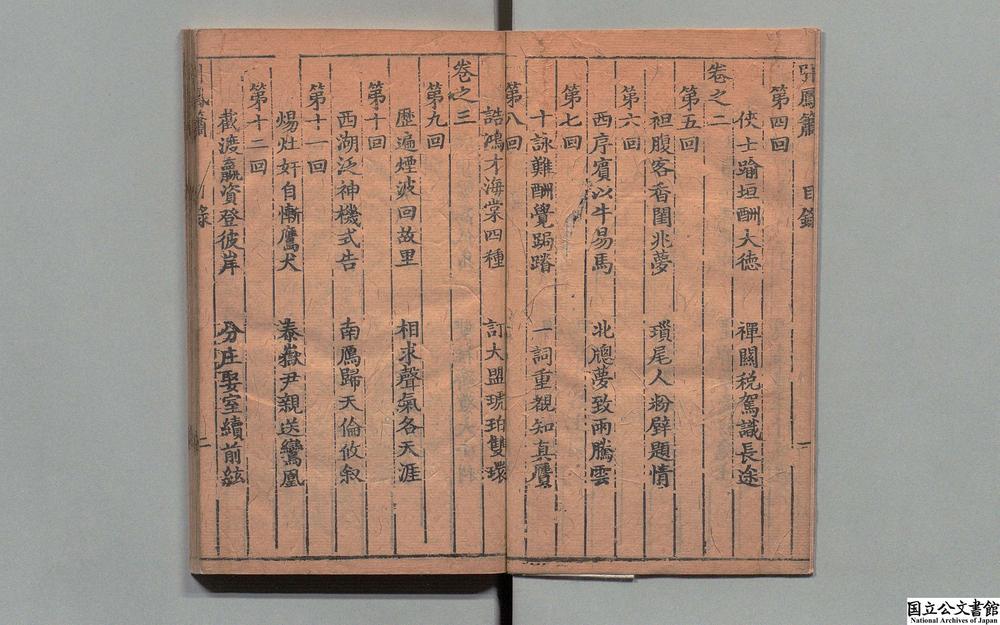 引鳳簫 目錄 一
第四回
俠士踰垣酬大德 禪關税駕識長途
卷之二
第五回
袒腹客香閨兆夢 瑣尾人粉壁題情
第六回
西序賓以牛易馬 北牕夢致雨騰雲
第七回
十詠難酬覺跼蹐 一詞重觀知真贋
第八回
誥鴻才海棠四種 訂大盟琥珀雙環
卷之三
第九回
歷遍煙波回故里 相求聲氣各天涯
第十回
西湖泛神機式告 南鴈歸天倫攸叙
第十一回
煬灶奸自慚鷹犬 泰嶽尹親送鸞凰
第十二回
截渡贏資登彼岸 分庄娶室續前絃
鳳簫 目錄 二
国立公文書館
National Archives of Japan